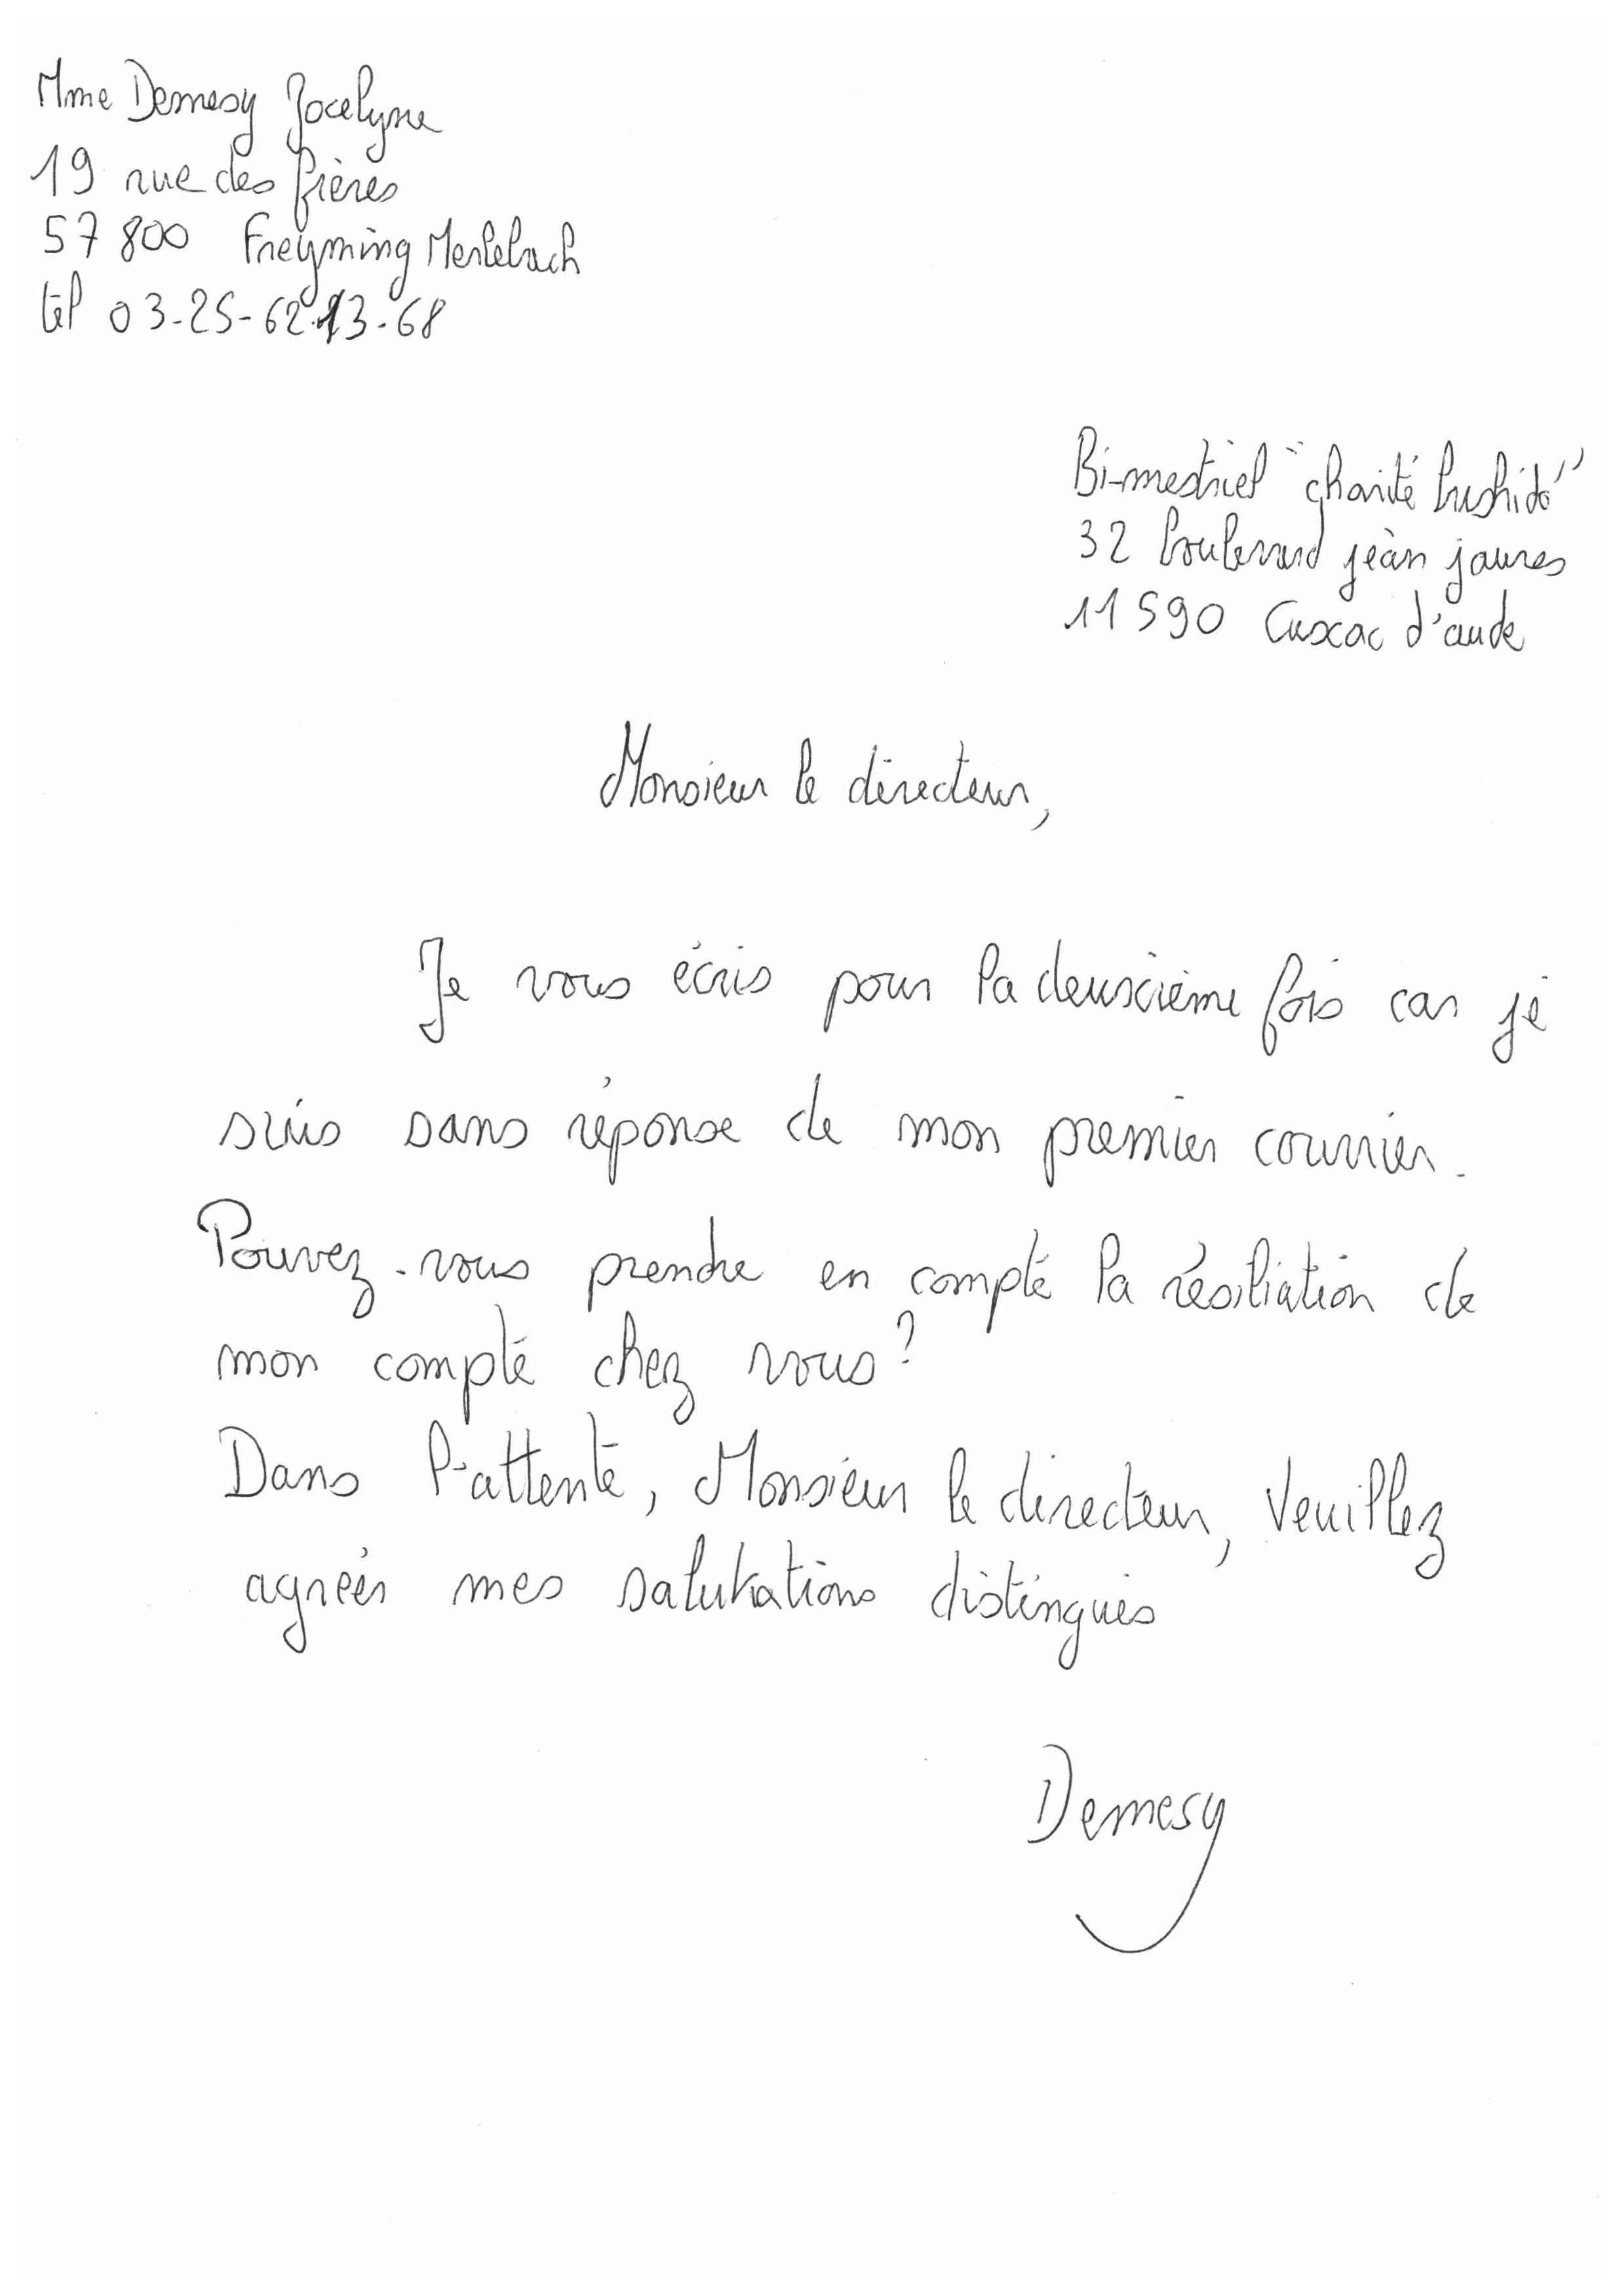 Mme Demesy Jocelyne
19 rue des frères
57 800 Freyming Merlebach
tél 03-25-62-13-68
Bi-mestriel "charité bushido"
32 boulevard jean jaures
11 590 Cuxac d'aude
Monsieur le directeur,
Je vous écris pour la deuxième fois car je
suis sans réponse de mon premier courrier.
Pouvez-vous prendre en compte la résiliation de
mon compte chez vous?
Dans l'attente, Monsieur le directeur, Veuillez
agréer mes salutations distingués
Demesy